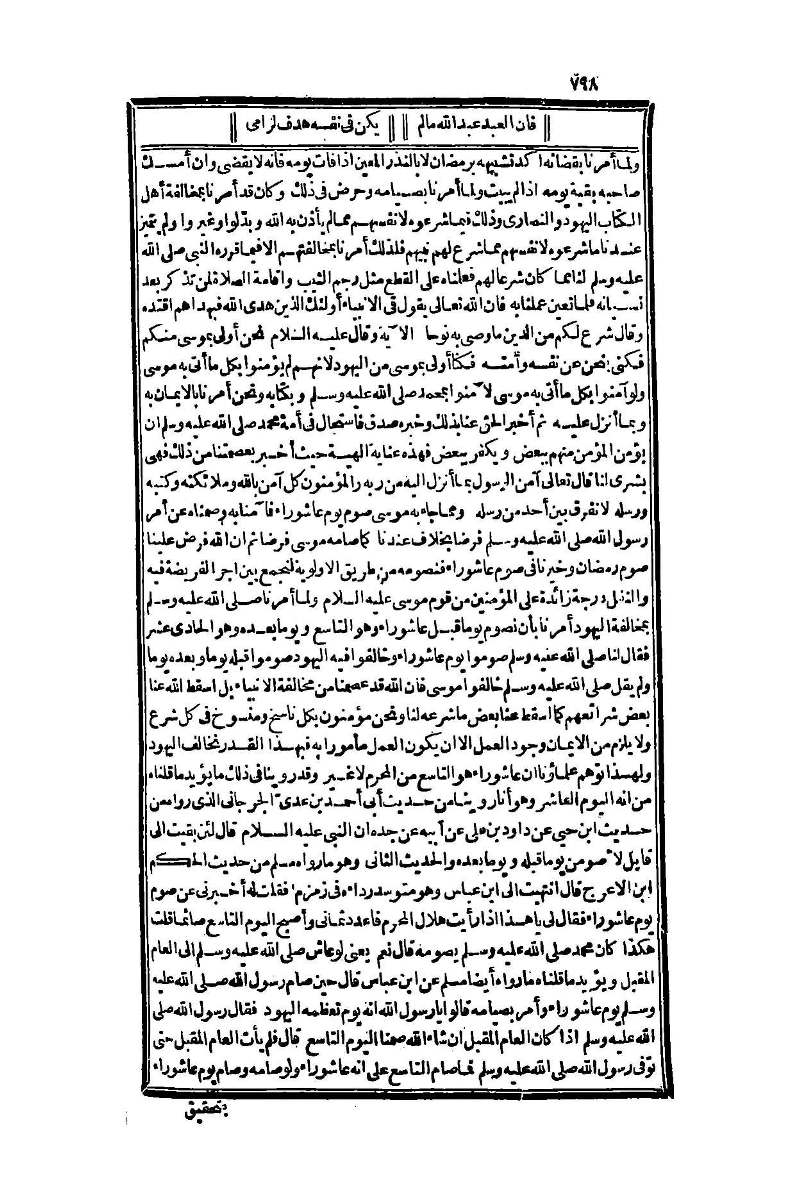 ٧٩٨
فان العبد عبد الله مالم || يكن فى نفسه هدف لرامى
ولما أمرنا بقضائه أكد تشبيهه برمضان لا بالنذر المعين اذا فات يومه فانه لا يقضى وان أمسك
صاحبه بقية يومه اذا لم يبيت ولما أمرنا بصيامه وحرض فى ذلك وكان قد أمرنا بمخالفة أهل
الكتاب اليهود والنصارى وذلك فيما شرعوه لا نفسهم مما لم يأذن به الله وبدلوا وغيروا ولم يتميز
عندنا ما شرعوه لا نفسهم مما شرع لهم نبيهم فلذلك أمرنا بمخالفتهم الا فيما قرره النبى صلى الله
عليه وسلم لنا مما كان شرعا لهم فعلناه على القطع مثل رجم الثيب واقامة الصلاة لمن تذكر بعد
نسيانه فلما تعين عملنا به فان الله تعالى يقول فى الانبياء أولئك الذين هدى الله فبهداهم اقتده
وقال شرع لكم من الدين ما وصى به نوحا الآية وقال عليه السلام نحن أولى بموسى منكم
فكنى بنحن عن نفسه وأمته فكنا أولى بموسى من اليهود لانهم لم يؤمنوا بكل ما أتى به موسى
ولو آمنوا بكل ما أتى به موسى لآمنوا بمحمد صلى الله عليه وسلم وبكتابه ونحن أمرنا بالايمان به
وبما أنزل عليه ثم أخبر الحق عنا بذلك وخبره صدق فاستحال فى أمة محمد صلى الله عليه وسلم ان
يؤمن المؤمن منهم ببعض ويكفر ببعض فهذه عناية الهية حيث أخبر بعصمتنا من ذلك فهى
بشرى لنا قال تعالى آمن الرسول بما أنزل اليه من ربه والمؤمنون كل آمن بالله وملائكته وكتبه
ورسله لا نفرق بين أحد من رسله ومما جاء به موسى صوم يوم عاشوراء فآمنا به وصمناه عن أمر
رسول الله صلى الله عليه وسلم فرضا بخلاف عندنا كما صامه موسى فرضا ثم ان الله فرض علينا
صوم رمضان وخيرنا فى صوم عاشوراء فنصومه من طريق الاولوية لنجمع بين اجر الفريضة فيه
والنفل درجة زائدة على المؤمنين من قوم موسى عليه السلام ولما أمرنا صلى الله عليه وسلم
بمخالفة اليهود أمرنا بأن نصوم يوما قبل عاشوراء وهو التاسع ويوما بعده وهو الحادى عشر
فقال لنا صلى الله عليه وسلم صوموا يوم عاشوراء وخالفوا فيه اليهود صوموا قبله يوما وبعده يوما
ولم يقل صلى الله عليه وسلم خالفوا موسى فان الله قد عصمنا من مخالفة الانبياء بل اسقط الله عنا
بعض شرائعهم كما اسقط عنا بعض ما شرعه لنا ونحن مؤمنون بكل ناسخ ومنسوخ فى كل شرع
ولا يلزم من الايمان وجود العمل الا ان يكون العمل مأمورا به فبهذا القدر نخالف اليهود
ولهذا توهم علماؤنا ان عاشوراء هو التاسع من المحرم لا غير وقد روينا فى ذلك ما يؤيد ما قلناه
من انه اليوم العاشر وهو أنا روينا من حديث أبى أحمد بن عدى الجرجانى الذى رواه من
حديث ابن حيى عن داود بن على عن أبيه عن جده ان النبى عليه السلام قال لئن بقيت الى
قابل لأصومن يوما قبله ويوما بعده والحديث الثانى وهو ما رواه مسلم من حديث الحكم
ابن الاعرج قال انتهيت الى ابن عباس وهو متوسد رداءه فى زمزم فقلت له أخبرنى عن صوم
يوم عاشوراء فقال لى يا هذا اذا رأيت هلال المحرم فاعدد ثمانى وأصبح اليوم التاسع صائما قلت
هكذا كان محمد صلى الله عليه وسلم يصومه قال نعم يعنى لو عاش صلى الله عليه وسلم الى العام
المقبل ويؤيد ما قلناه ما رواه أيضا مسلم عن ابن عباس قال حين صام رسول الله صلى الله عليه
وسلم يوم عاشوراء وأمر بصيامه قالوا يا رسول الله انه يوم تعظمه اليهود فقال رسول الله صلى
الله عليه وسلم اذا كان العام المقبل ان شاء الله صمنا اليوم التاسع قال فلم يأت العام المقبل حتى
توفى رسول الله صلى الله عليه وسلم فما صام التاسع على انه عاشوراء ولو صامه وصام يوم عاشوراء
بتحقيق